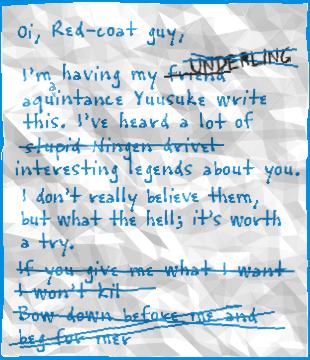 Oi, Red-coat guy,
UNDERLING
I'm having my friend
aquintance Yuusuke write
this. I've heard a lot of
stupid Ningen drivel
interesting legends about you.
I don't really believe them,
but what the hell; it's worth
a try.
If you give me what I want
I won't kill
Bow down before me and
beg for mer